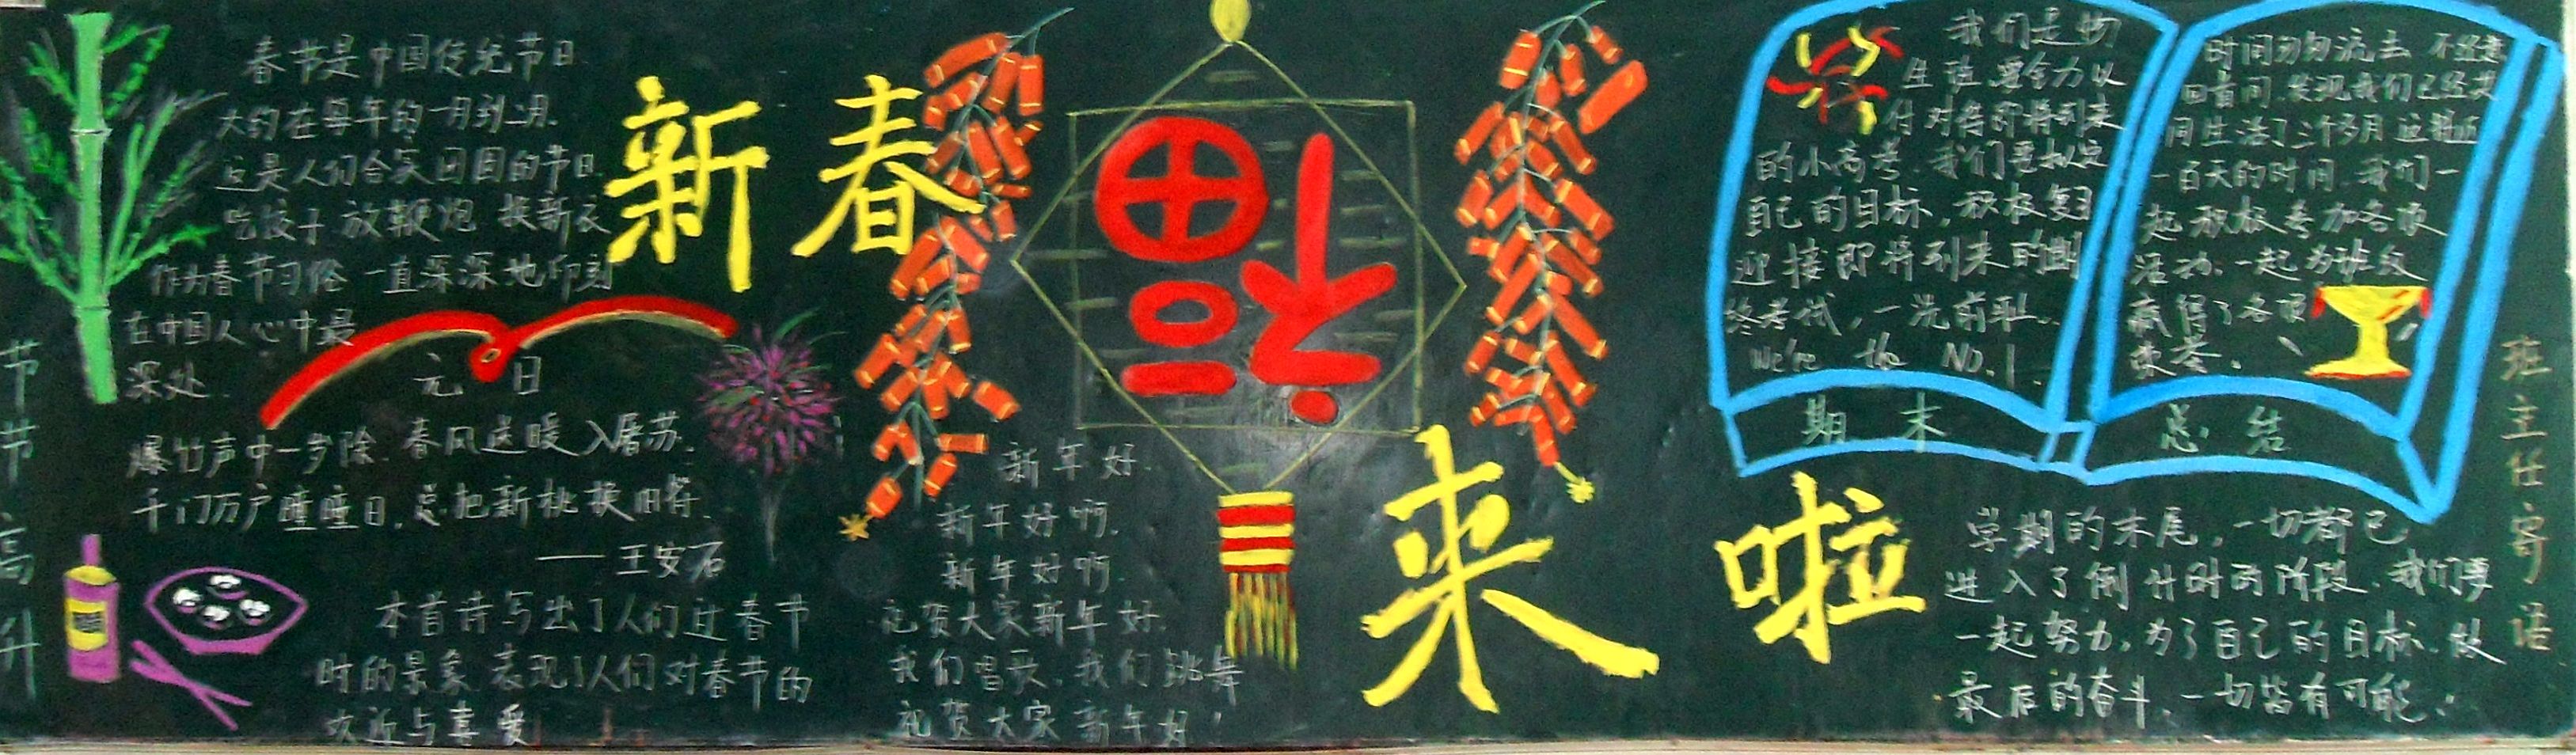 节节高升
春节是中国传统节日
大约在每年的一月到二月.
这是人们合家团圆的节日.
吃饺子 放鞭炮 换新衣
作为春节习俗 一直深深地印刻
在中国人心中最
深处.
元日
爆竹声中一岁除. 春风送暖入屠苏.
千门万户瞳瞳日. 总把新桃换旧符.
——王安石
本首诗写出了人们过春节
时的景象.表现了人们对春节的
欢近与喜爱
新春
福
来啦
新年好.
新年好啊.
新年好啊.
祝贺大家新年好.
我们唱歌.我们跳舞
祝贺大家新年好!
我们是物
生班 要全力以
付对待即将到来
的小高考.我们要拟定
自己的目标,积极复习
迎接即将到来的期
终考试,一洗前耻.
We're the NO.1.
期末
时间匆匆流去 不经意
回首间.发现我们已经共
同生活了三个多月 这将近
一百天的时间.我们一
起积极参加各项
活动.一起为班级
赢得了各项
荣誉.
总结
学期的末尾,一切都已
进入了倒计时的阶段.我们要
一起努力,为了自己的目标.做
最后的奋斗,一切皆有可能.
班主任寄语